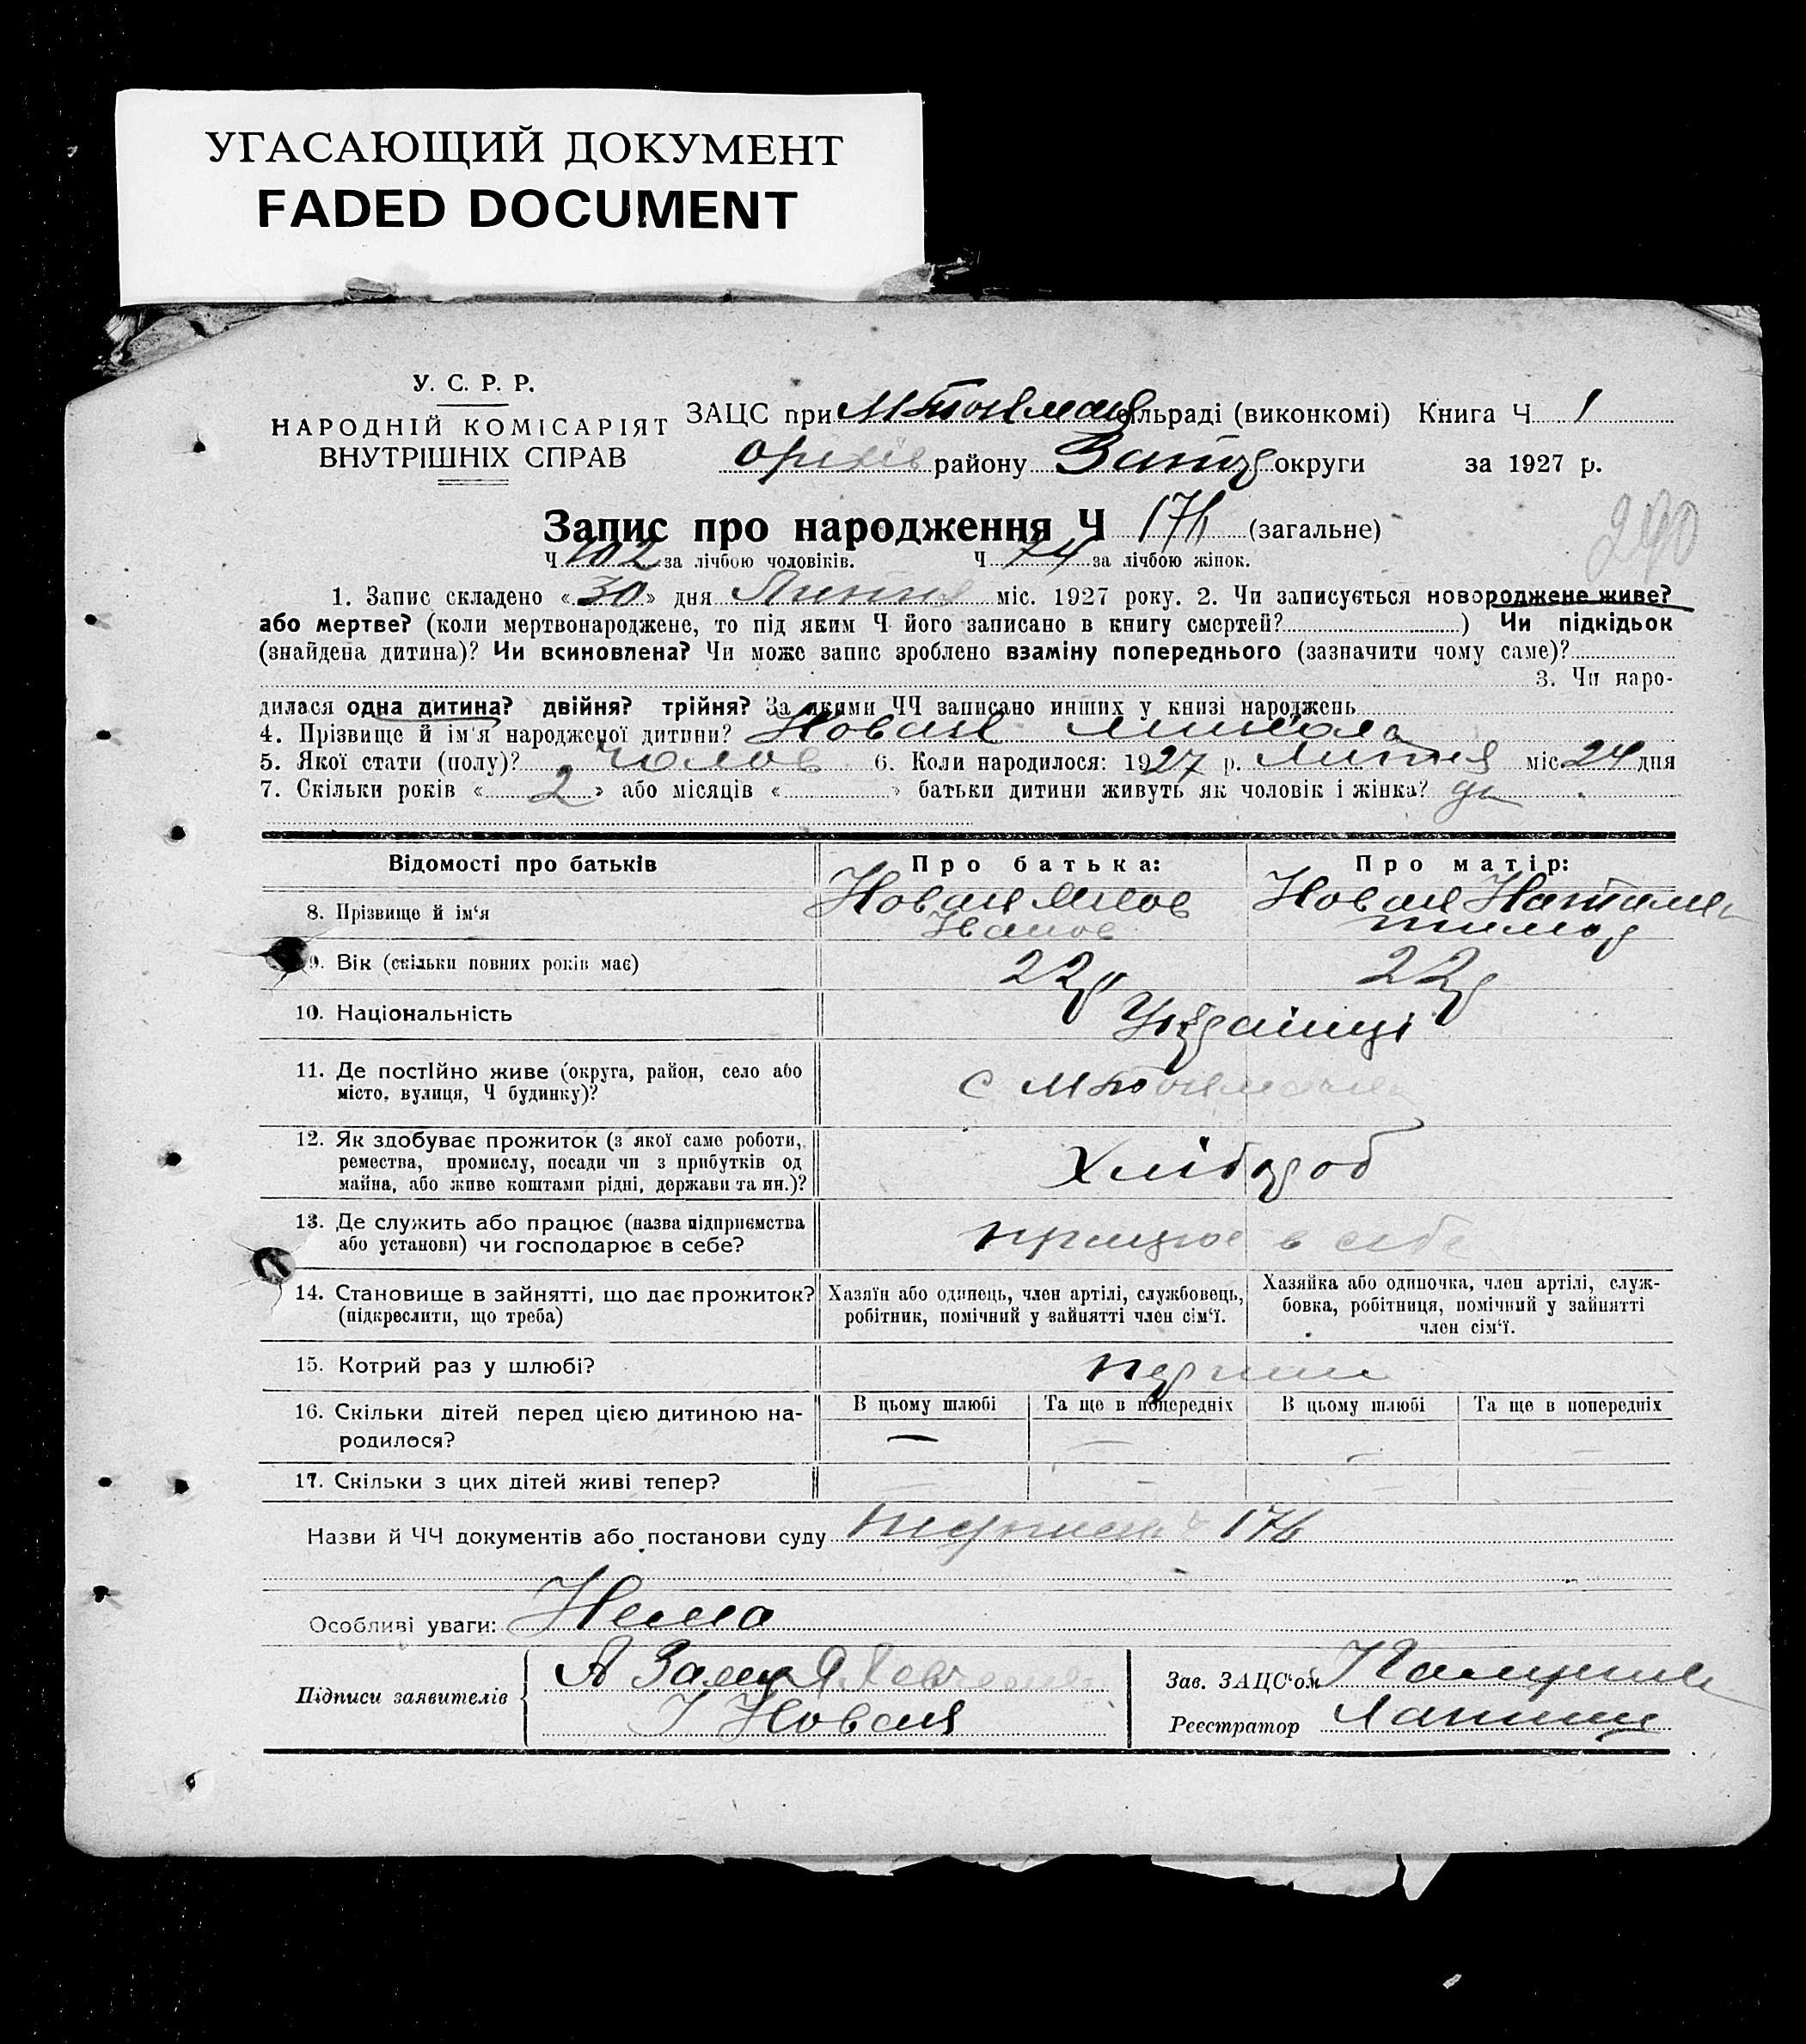 УГАСАЮЩИЙ ДОКУМЕНТ
FADED DOCUMENT
У. С. Р. Р.
НАРОДНІЙ КОМІСАРІЯТ
ВНУТРІШНІХ СПРАВ
ЗАЦС при сільраді (виконкомі) Книга Ч 1
Оріхів району Запор округи за 1927 р.
290
Запис про народження Ч 176 (загальне)
Ч 102 за лічбою чоловіків. Ч 74 за лічбою жінок.
1. Запис складено «30» дня Липня міс. 1927 року. 2. Чи записується новороджене живе?
або мертве? (коли мертвонароджене, то під яким Ч його записано в книгу смертей?) Чи підкідьок
(знайдена дитина)? Чи всиновлена? Чи може запис зроблено взаміну попереднього (зазначити чому саме)?
3. Чи наро-
дилася одна дитина? двійня? трійня? За якими ЧЧ записано инших у книзі народжень
4. Прізвище й ім'я народженої дитини? Новак Микола
5. Якої стати (полу)? Чолов 6. Коли народилося: 1927 р. Липня міс. 24 дня
7. Скільки років «2» або місяців « » батьки дитини живуть як чоловік і жінка? да
Відомості про батьків Про батька: Про матір:
8. Прізвище й ім'я Новак Яков Новак Наталия
Іванов Тимоф
9. Вік (скільки повних років має) 22р 22р
10. Національність Українці
11. Де постійно живе (округа, район, село або
місто, вулиця, Ч будинку)? с
12. Як здобуває прожиток (з якої саме роботи,
ремества, промислу, посади чи з прибутків од
майна, або живе коштами рідні, держави та ин.)? Хлібороб
13. Де служить або працює (назва підприємства
або установи) чи господарює в себе? працює в себе
14. Становище в зайнятті, що дає прожиток?
(підкреслити, що треба)
Хазяїн або одинець, член артілі, службовець,
робітник, помічний у зайнятті член сім'ї.
Хазяйка або одиночка, член артілі, служ-
бовка, робітниця, помічний у зайнятті
член сім'ї.
15. Котрий раз у шлюбі? перший
16. Скільки дітей перед цією дитиною на-
родилося?
В цьому шлюбі Та ще в попередніх В цьому шлюбі Та ще в попередніх
— — — —
17. Скільки з цих дітей живі тепер? — — — —
Назви й ЧЧ документів або постанови суду 176
Особливі уваги: Нема
Підписи заявителів
Новак
Зав. ЗАЦС'ом
Реєстратор